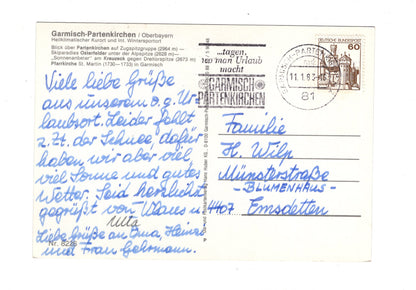 Garmisch-Partenkirchen / Oberbayern
Heilklimatischer Kurort und int. Wintersportort
Blick über Partenkirchen auf Zugspitzgruppe (2964 m) —
Skiparadies Osterfelder unter der Alpspitze (2628 m) —
"Sonnenanbeter" am Kreuzeck gegen Dreitorspitze (2673 m)
Pfarrkirche St. Martin (1730 - 1733) in Garmisch
Viele liebe Grüße
aus unserem o.g. Ur-
laubsort. Leider fehlt
z. Zt. der Schnee, dafür
haben wir aber viel
viel Sonne und gutes
Wetter. Seid herzlichst
gegrüßt von Klaus u.
Utta
Liebe Grüße an Oma, Heinz
und Frau Gehrmann.
Nr. 8226
...tagen,
wo man Urlaub
macht
GARMISCH
PARTENKIRCHEN
11.1.83
81
DEUTSCHE BUNDESPOST
60
Familie
H. Wilp
Münsterstraße
- BLUMENHAUS -
4407 Emsdetten